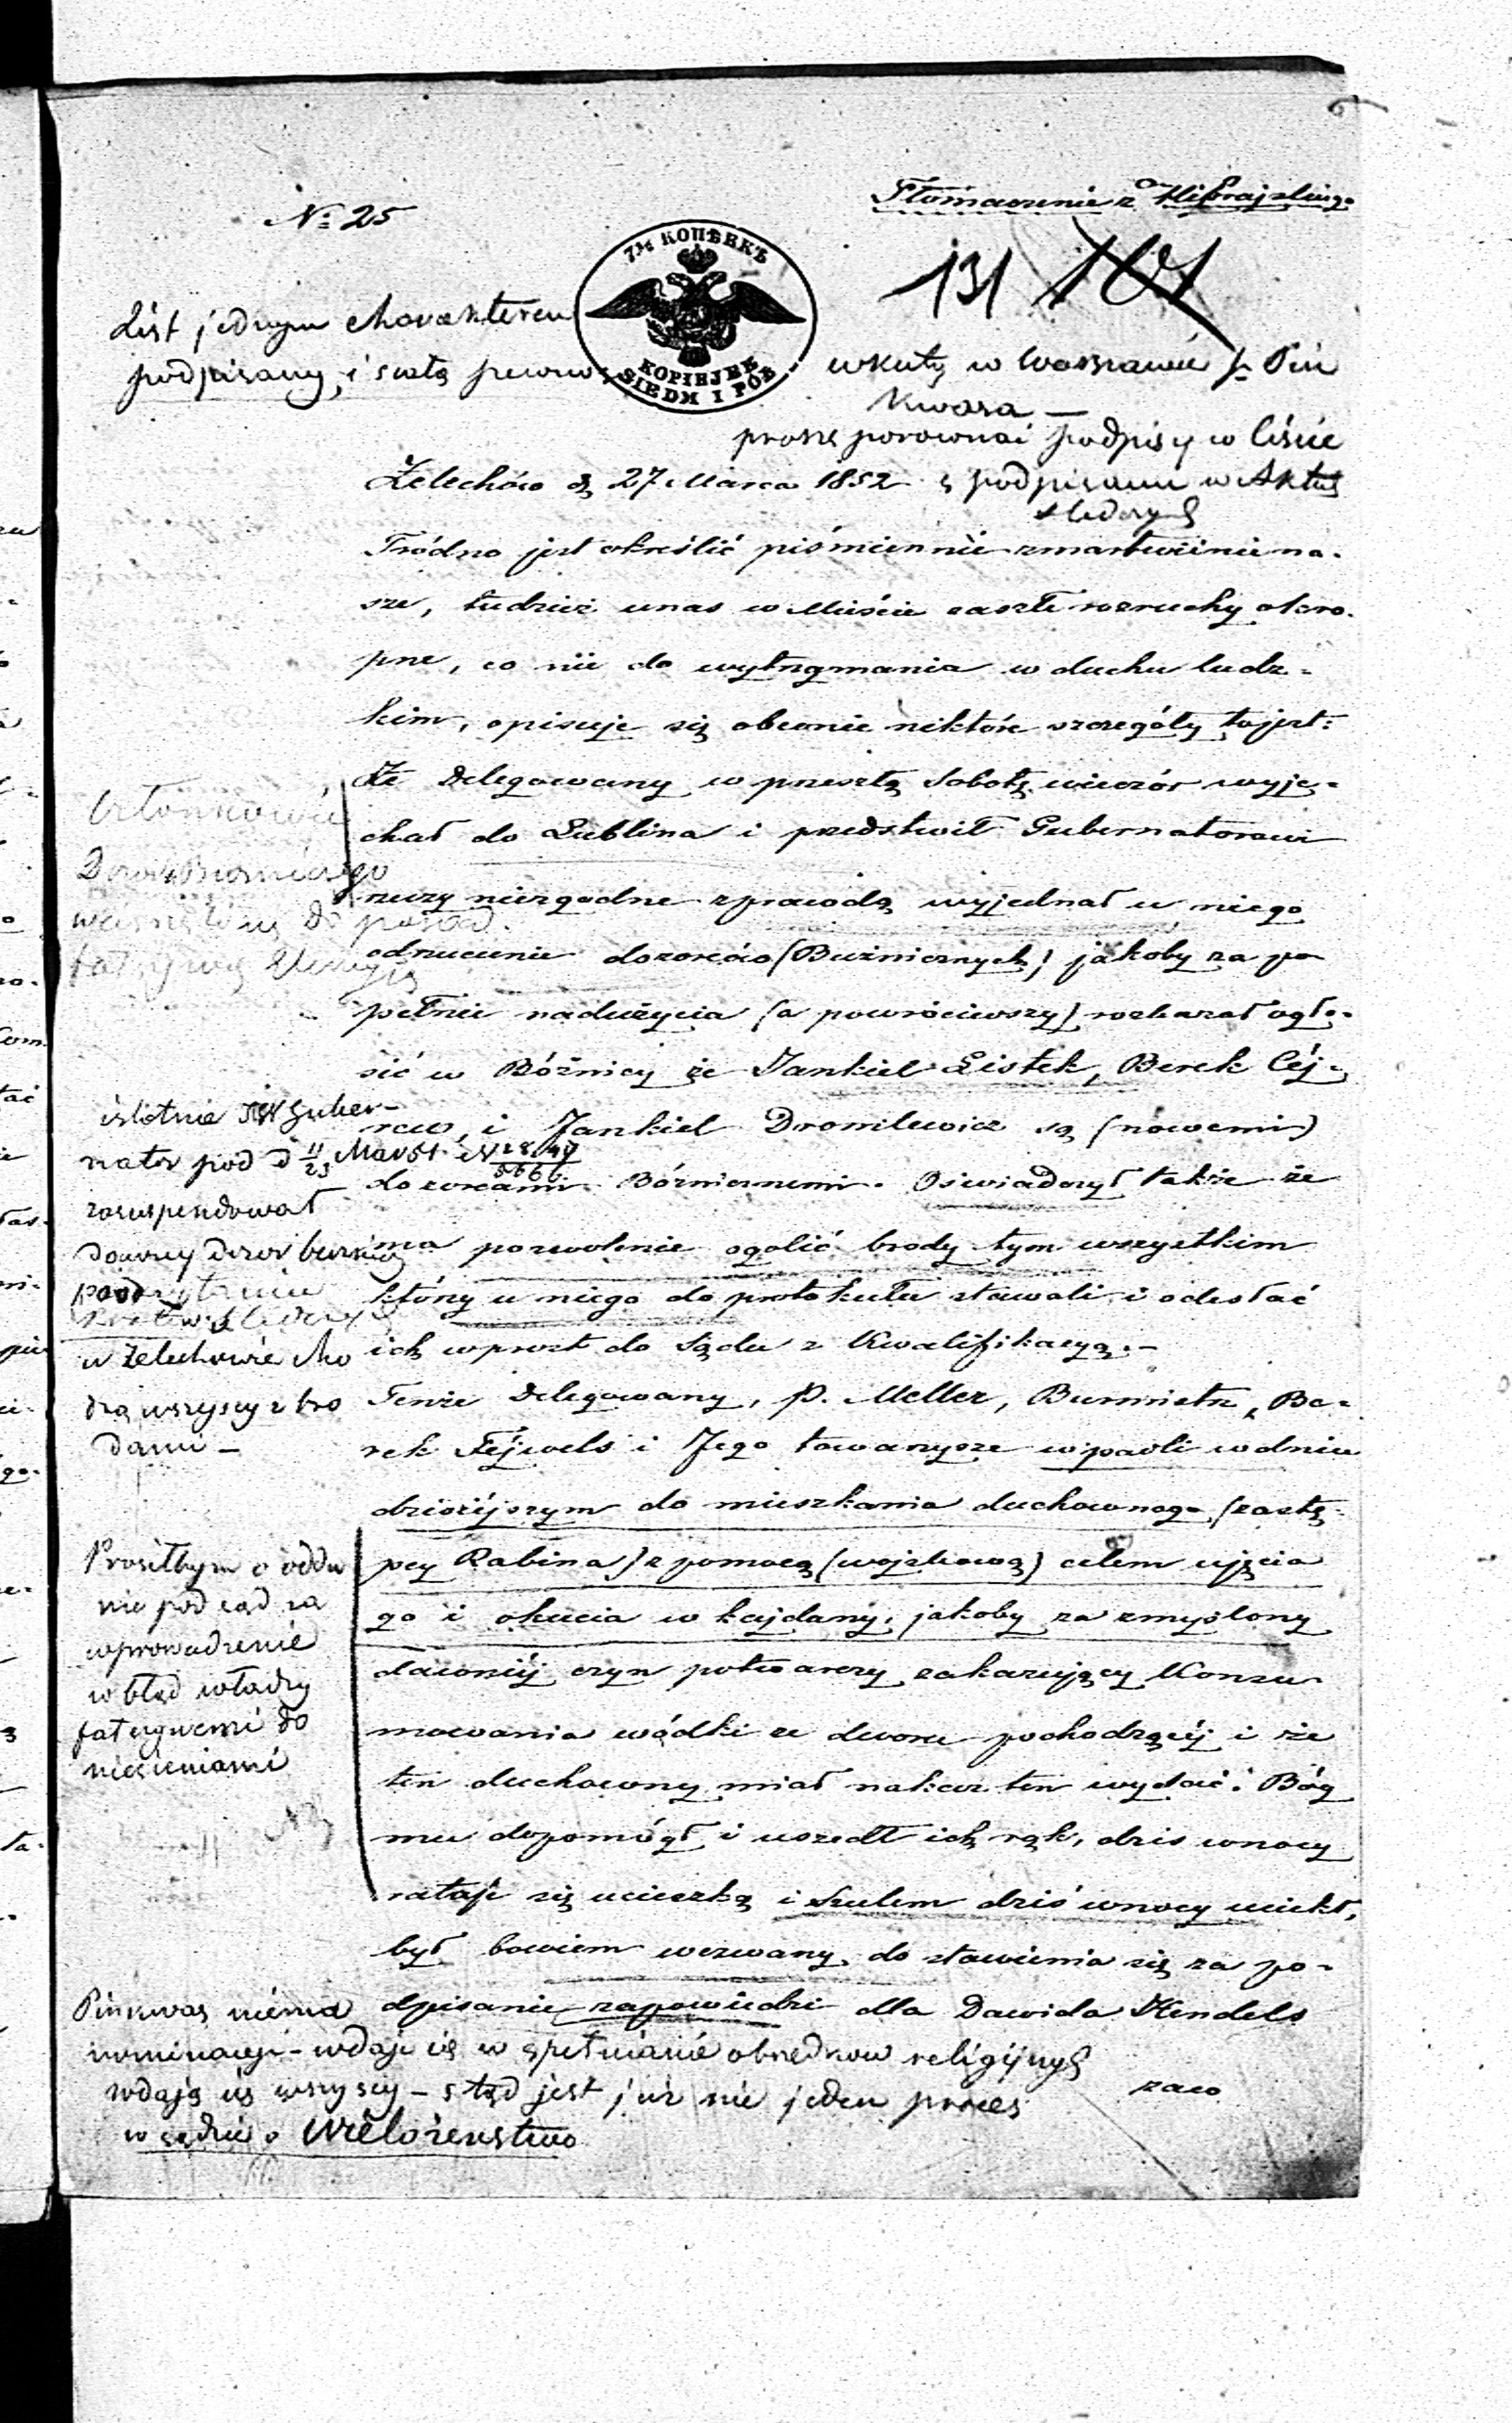 Tłómaczenie z Hebrajskiego
№ 25
131 101
7½ КОПѢЕКЪ
KOPIEJEK
SIEDM I PÓŁ
List jednym charakterem
podpisany, i siłą pewną
wkuty w Warszawie p. Pin
kwasa —
proszę porownać podpisy w liście
z podpisami w Aktach
śledczych
Żelechów d. 27 Marca 1852
Tródno jest określić piśmiennie zmartwienie na-
sze, tudzież unas w Mieście zaszłe rozruchy okro-
pne, co nie do wytrzymania w duchu ludz-
kim, opisuje się obecnie niektóre szczegóły, to jest:
Że Delegowany w przeszłą Sobotę wieczór wyje-
chał do Lublina i przedstwił Gubernatorowi
rzeczy niezgodne z prawdą wyjednał u niego
odrzucenie dozorców (Bużnicznych) jakoby za po-
pełnie nadużycia (a powróciwszy) rozkazał ogło-
sić w Bóżnicy że Jankiel Listek, Berek Cej-
rew, i Jankiel Dromlewicz są (nowemi)
dozorcami Bóżnicznemi. Oświadczył także że
ma pozwolenie ogolić brody tym wszystkim
którzy u niego do protokułu stawali i odesłać
ich wprost do Sądu z Kwalifikacyą.—
Tenże Delegowany, P. Meller, Burmistrz, Be-
rek Fejwels i Jego towarzysze wpadli w dniu
dzisiéjszym do mieszkania duchownego (zastę-
pcy Rabina) z pomocą (wojskową) celem ujęcia
go i okucia w kajdany, jakoby za zmyślony
dawniéj czyn potwarczy zakazujący Konsu-
mowania wódki ze dworu pochodzącéj i że
ten duchowny miał nakaz ten wydać. Bóg
mu dopomógł i uszedł ich rąk, dzis wnocy
ratuje się ucieczką i Szulem dziś wnocy uciekł,
był bowiem wezwany do stawienia się za po-
dpisanie zapowiedzi dla Dawida Hendels
zaw
Członkowie
Dozoru Bozniczego
istotnie JW Guber-
nator pod d 11/23 Mar 51 N 28,447/5666
zasuspendował
dozorcy dozor bużnicz
w Żelechowie cho
dzą wszyscy z bro
dami —
Prosiłbym o odda
nie pod sąd za
wprowadzenie
w błąd władzy
fałszywemi do
niesieniami
Pinkwas niema
nominacyi - wdaje się w spełnianie obrzędkow religijnych
wdają się wszyscy - stąd jest już nie jeden proces
w sądzie o Wielożenstwo